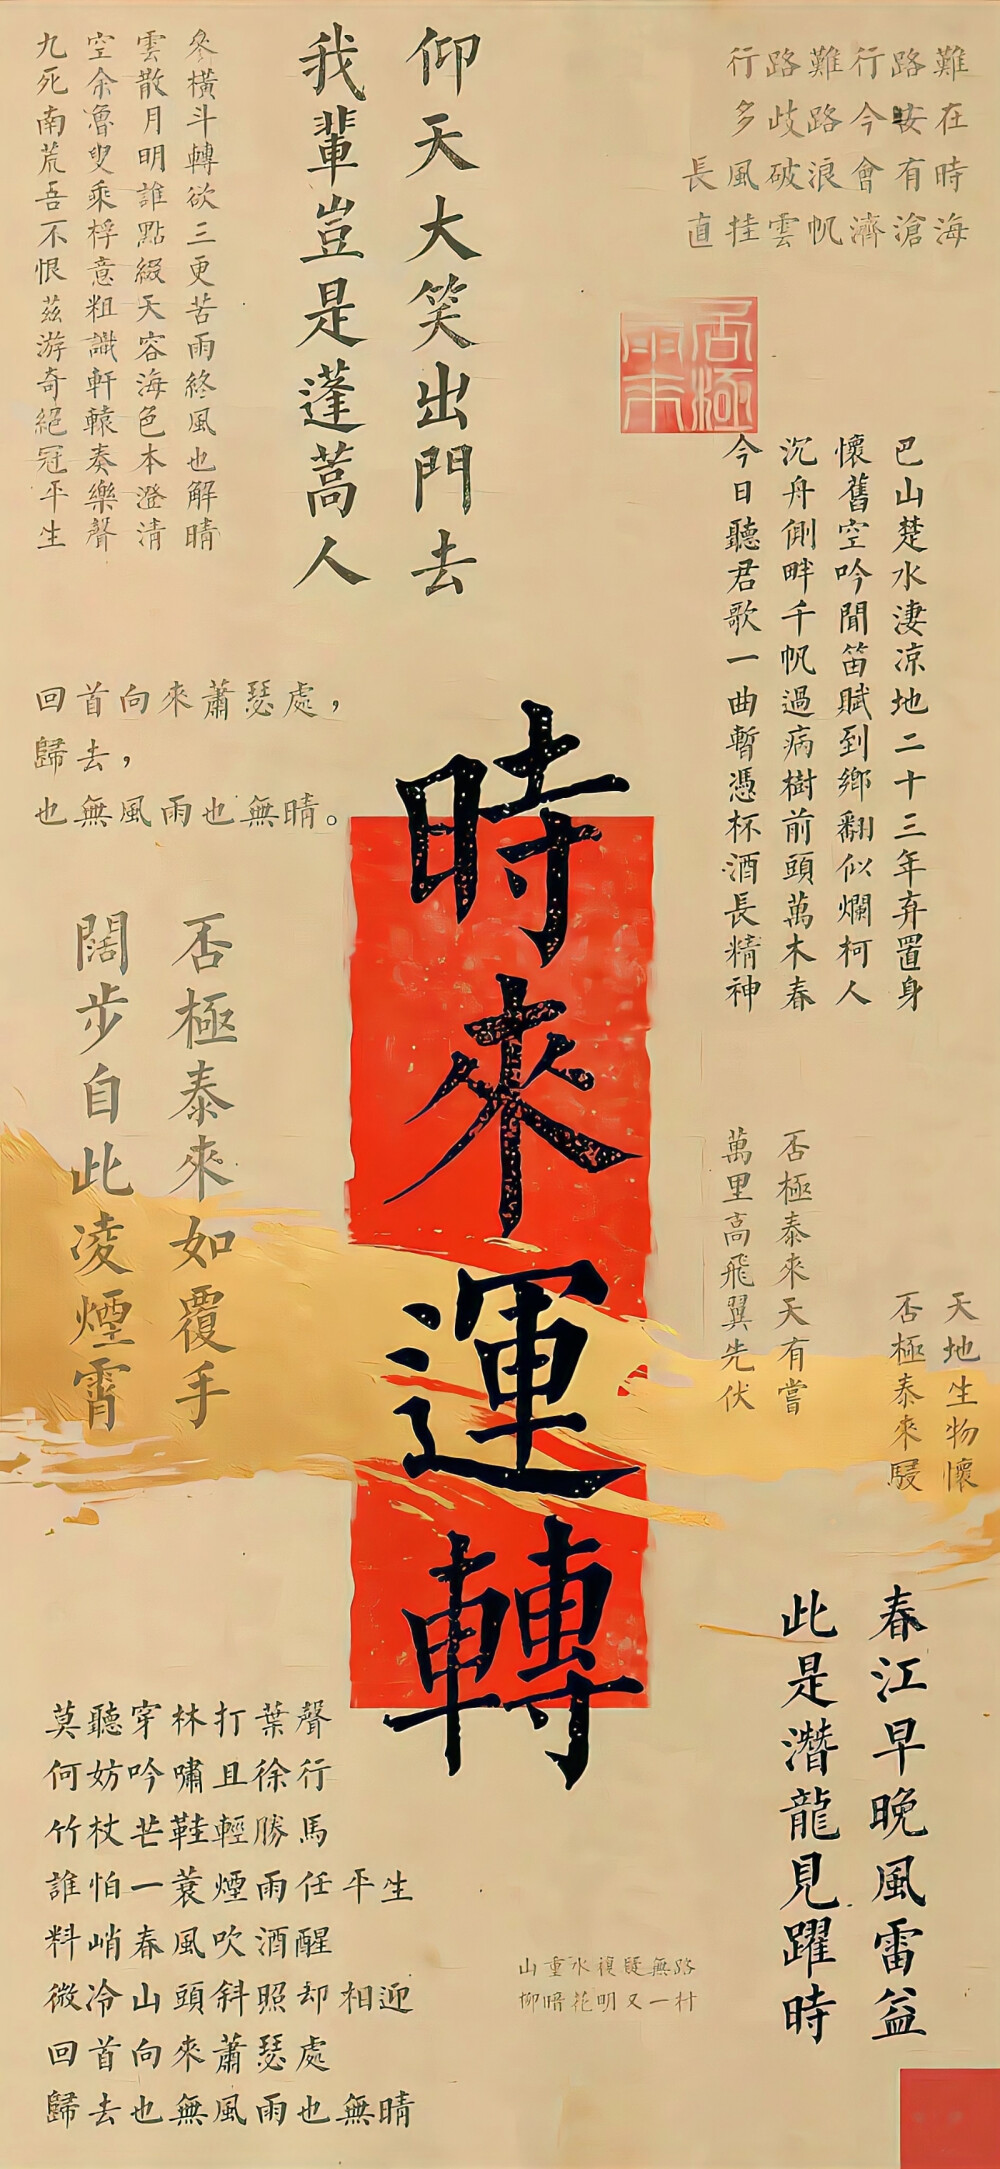 行路難行路難
多歧路今安在
長風破浪會有時
直挂雲帆濟滄海
否極
仰天大笑出門去
我輩豈是蓬蒿人
參橫斗轉欲三更苦雨終風也解晴
雲散月明誰點綴天容海色本澄清
空余魯叟乘桴意粗識軒轅奏樂聲
九死南荒吾不恨茲游奇絕冠平生
巴山楚水淒凉地二十三年弃置身
懷舊空吟聞笛賦到鄉翻似爛柯人
沉舟側畔千帆過病樹前頭萬木春
今日聽君歌一曲暫憑杯酒長精神
回首向來蕭瑟處，
歸去，
也無風雨也無晴。
時來運轉
否極泰來如覆手
闊步自此凌煙霄
否極泰來天有嘗
萬里高飛翼先伏
天地生物懷
否極泰來駸
春江早晚風雷益
此是潛龍見躍時
莫聽穿林打葉聲
何妨吟嘯且徐行
竹杖芒鞋輕勝馬
誰怕一蓑煙雨任平生
料峭春風吹酒醒
微冷山頭斜照却相迎
回首向來蕭瑟處
歸去也無風雨也無晴
山重水複疑無路
柳暗花明又一村